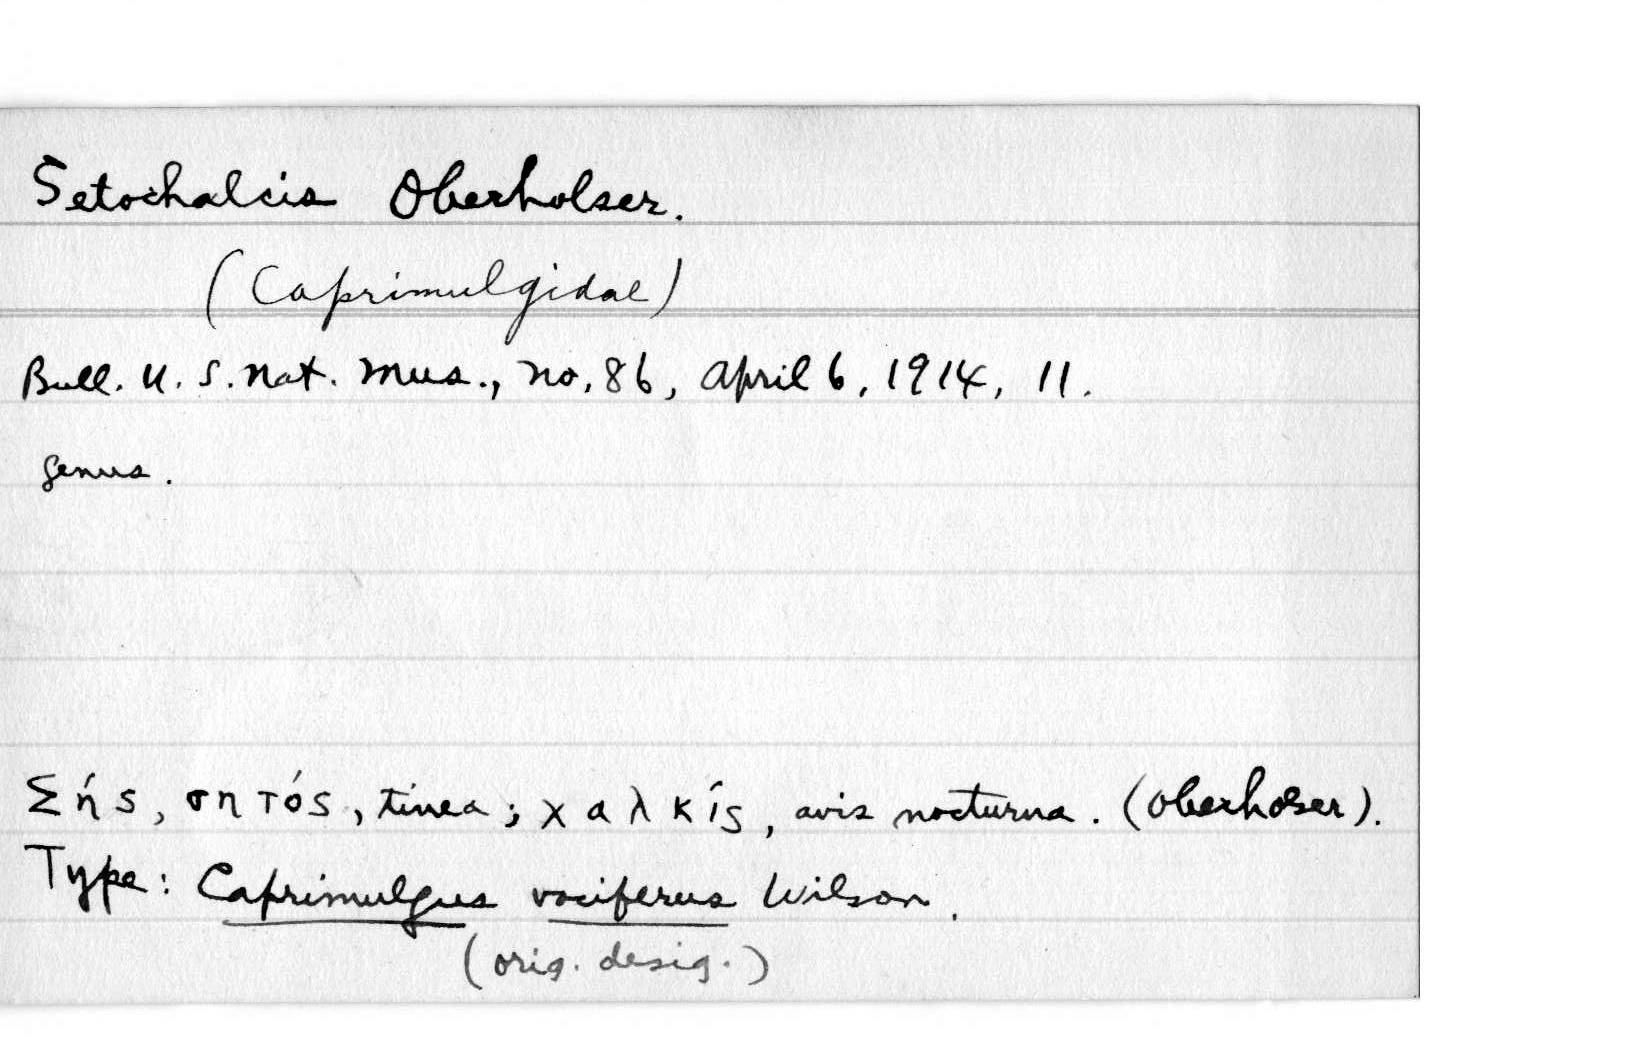 Setochalcis Oberholser.
(Caprimulgidae)
Bull. U. S. Nat. Mus., no. 86, April 6, 1914, 11.
Genus.
Σής, σητός, tinea; χαλκίς, avis nocturna. (Oberholser).
Type: Caprimulgus vociferus Wilson.
(orig. desig.)